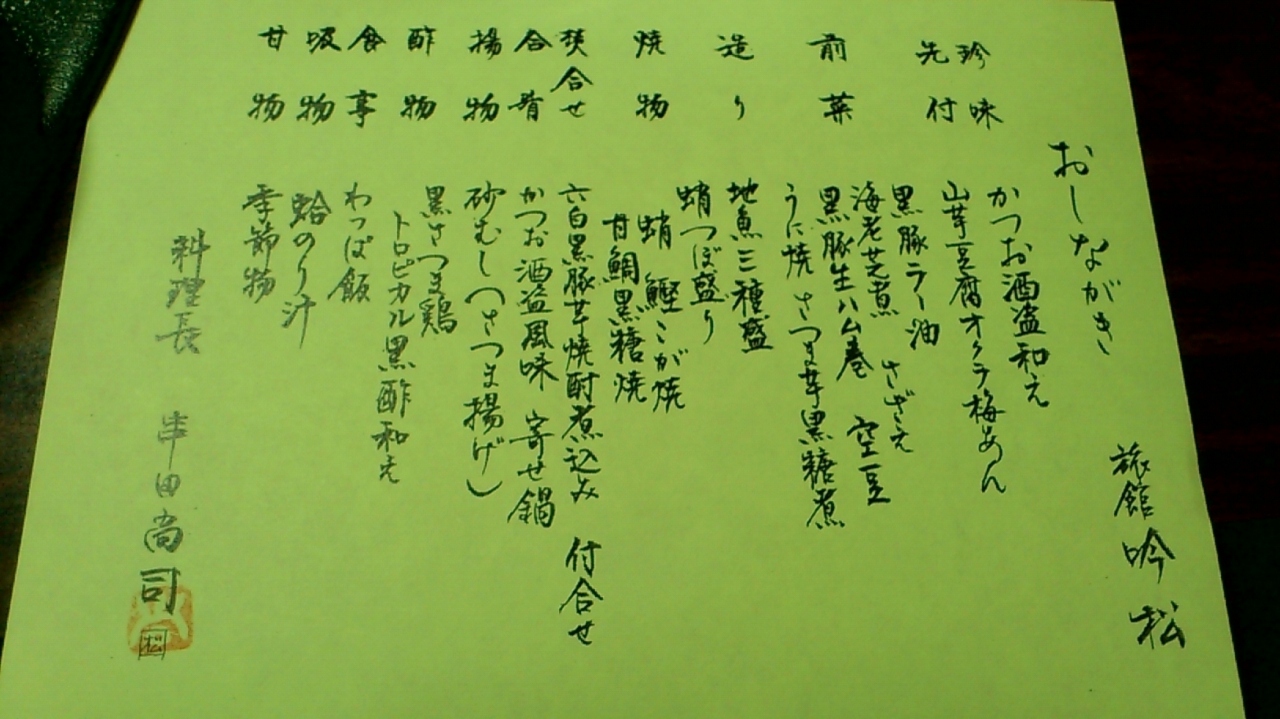 おしながき
旅館吟松
珍味
かつお酒盗和え
先付
山芋豆腐オクラ梅あん
前菜
黒豚ラー油 さざえ
海老芝煮 空豆
黒豚生ハム巻
うに焼 さつま芋黒糖煮
造り
地魚三種盛
蛸つぼ盛り
焼物
蛸 鰹こが焼
甘鯛黒糖焼
焚合せ
六白黒豚芋焼酎煮込み 付合せ
合肴
かつお酒盗風味 寄せ鍋
揚物
砂むし(さつま揚げ)
酢物
黒さつま鶏
トロピカル黒酢和え
食事
わっぱ飯
吸物
蛤のり汁
甘物
季節物
料理長 串田尚司